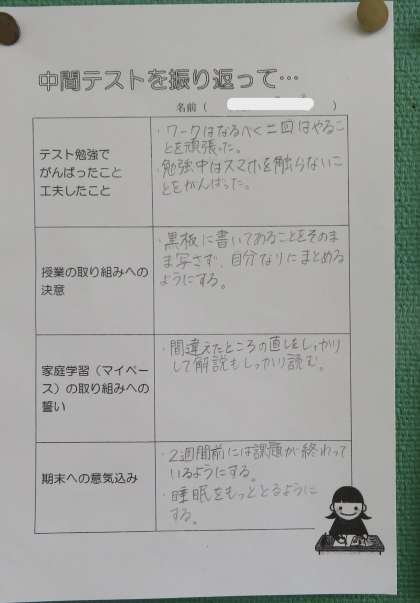 中間テストを振り返って…
名前（　　　）
テスト勉強で
がんばったこと
工夫したこと
・ワークはなるべく二回はやるこ
とを頑張った。
・勉強中はスマホを触らないこ
とをがんばった。
授業の取り組みへの
決意
・黒板に書いてあることをそのま
ま写さず、自分なりにまとめる
ようにする。
家庭学習（マイペー
ス）の取り組みへの
誓い
・間違えたところの直しをしっかり
して解説もしっかり読む。
期末への意気込み
・2週間前には課題が終わって
いるようにする。
・睡眠をもっととるように
する。